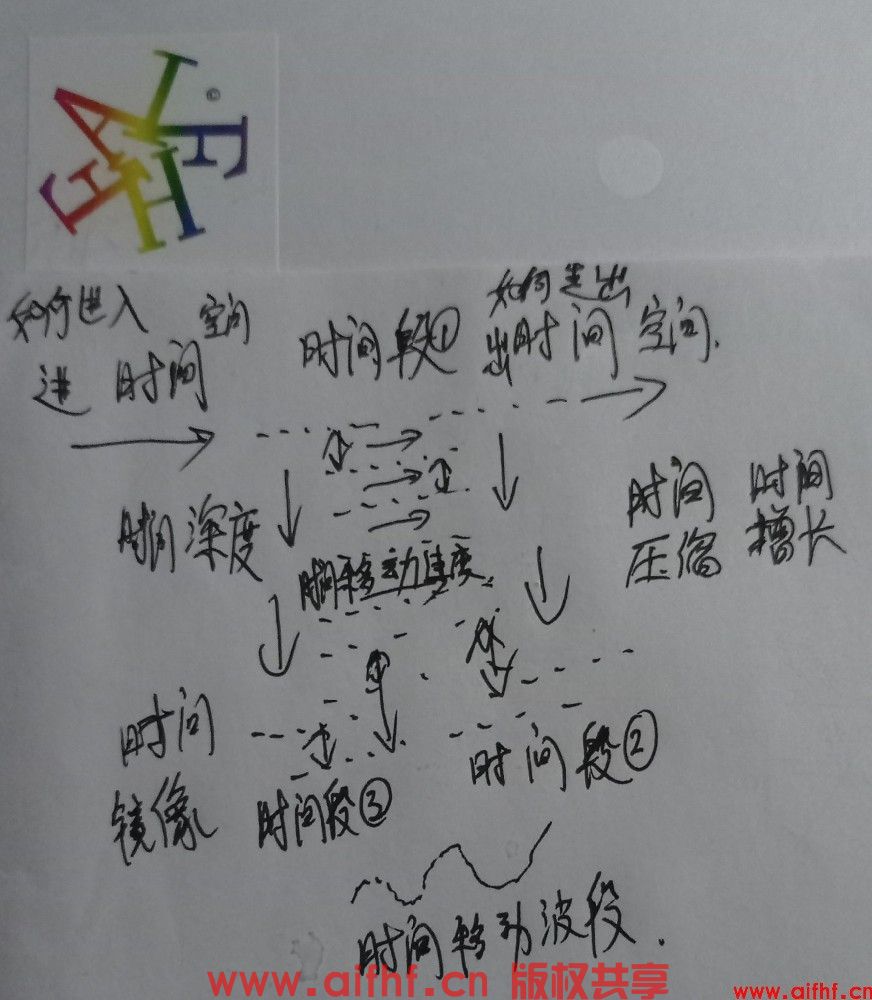 ©
AIFHF
如何进入 空间
进 时间
时间段①
如何走出
出时间 空间.
时间深度
时间移动速度
时间 时间
压缩 增长
时间
镜像
时间段③
时间段②
时间移动波段.
www.aifhf.cn 版权共享
www.aifhf.cn